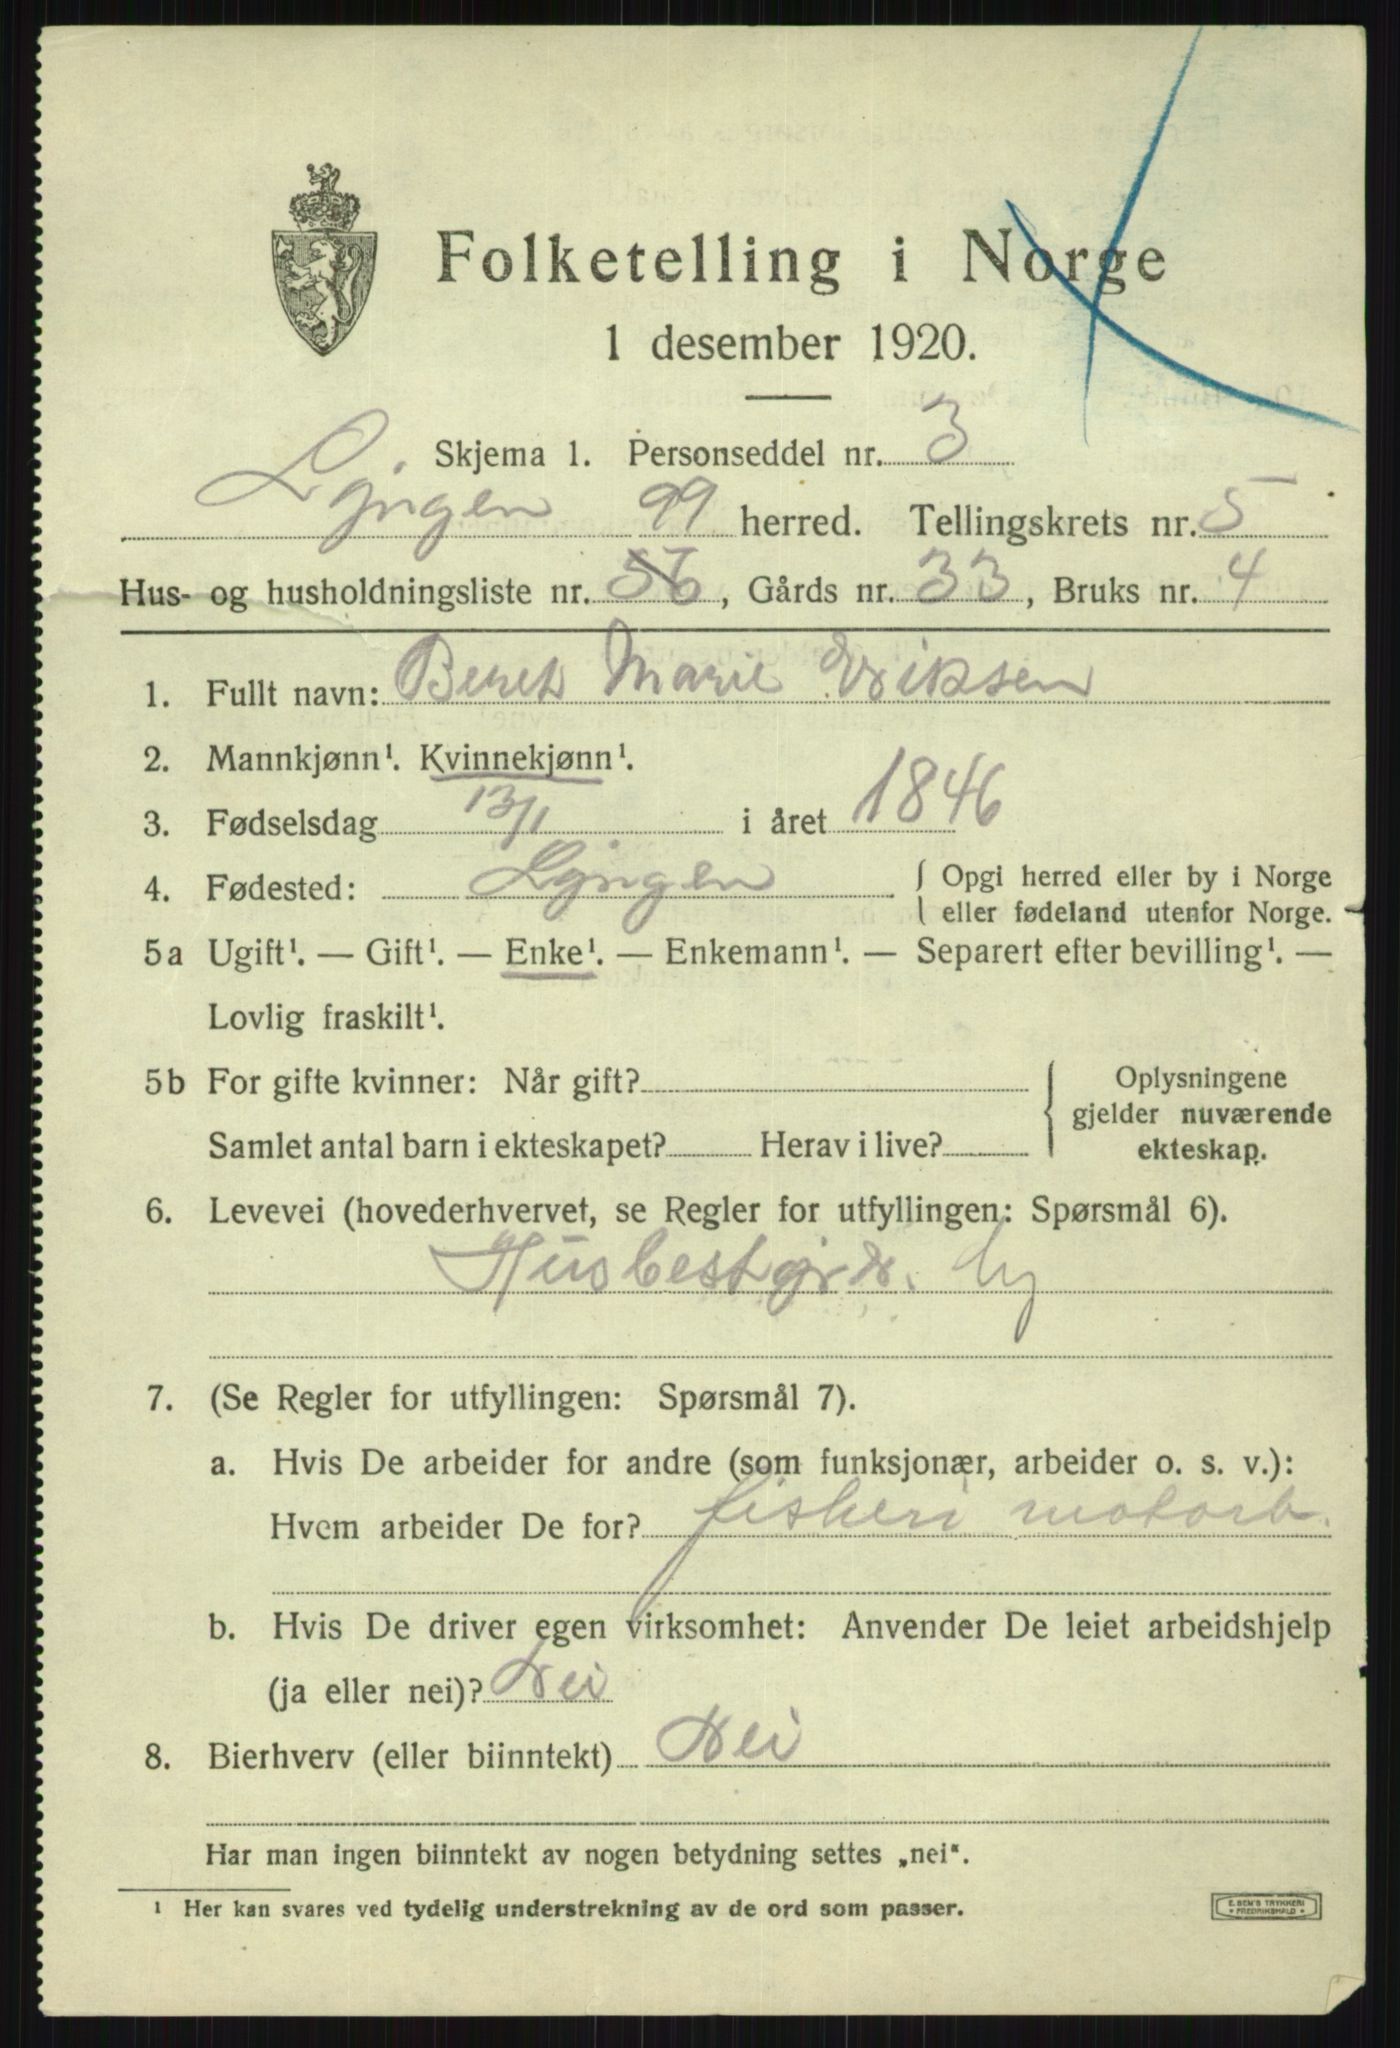 Folketelling i Norge
1 desember 1920.
Skjema 1. Personseddel nr. 3
Lyngen 99 herred. Tellingskrets nr. 5
Hus- og husholdningsliste nr. 56, Gårds nr. 33, Bruks nr. 4
1. Fullt navn: Beret Marie Eriksen
2. Mannkjønn¹. Kvinnekjønn¹.
3. Fødselsdag 13/1 i året 1846
4. Fødested: Lyngen { Opgi herred eller by i Norge
eller fødeland utenfor Norge.
5a Ugift¹. — Gift¹. — Enke¹. — Enkemann¹. — Separert efter bevilling¹. —
Lovlig fraskilt¹.
5b For gifte kvinner: Når gift? { Oplysningene
gjelder nuværende
Samlet antal barn i ekteskapet? Herav i live? ekteskap.
6. Levevei (hovederhvervet, se Regler for utfyllingen: Spørsmål 6).
Husbestyr
7. (Se Regler for utfyllingen: Spørsmål 7).
a. Hvis De arbeider for andre (som funksjonær, arbeider o. s. v.):
Hvem arbeider De for? fiskeri motorb.
b. Hvis De driver egen virksomhet: Anvender De leiet arbeidshjelp
(ja eller nei)? Nei
8. Bierhverv (eller biinntekt) Nei
Har man ingen biinntekt av nogen betydning settes „nei".
¹ Her kan svares ved tydelig understrekning av de ord som passer.
E. SEM'S TRYKKERI
* FREDRIKSHALD *